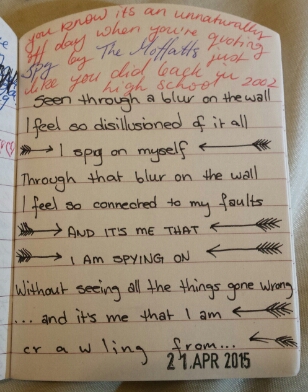 you know its an unnaturally
off day when you're quoting
Spy by The Moffatts just
like you did back in
high school 2002
Seen through a blur on the wall
I feel so disillusioned of it all
I spy on myself
Through that blur on the wall
I feel so connected to my faults
AND IT'S ME THAT
I AM SPYING ON
Without seeing all the things gone wrong
... and it's me that I am
cr a w l ing from...
21. APR 2015